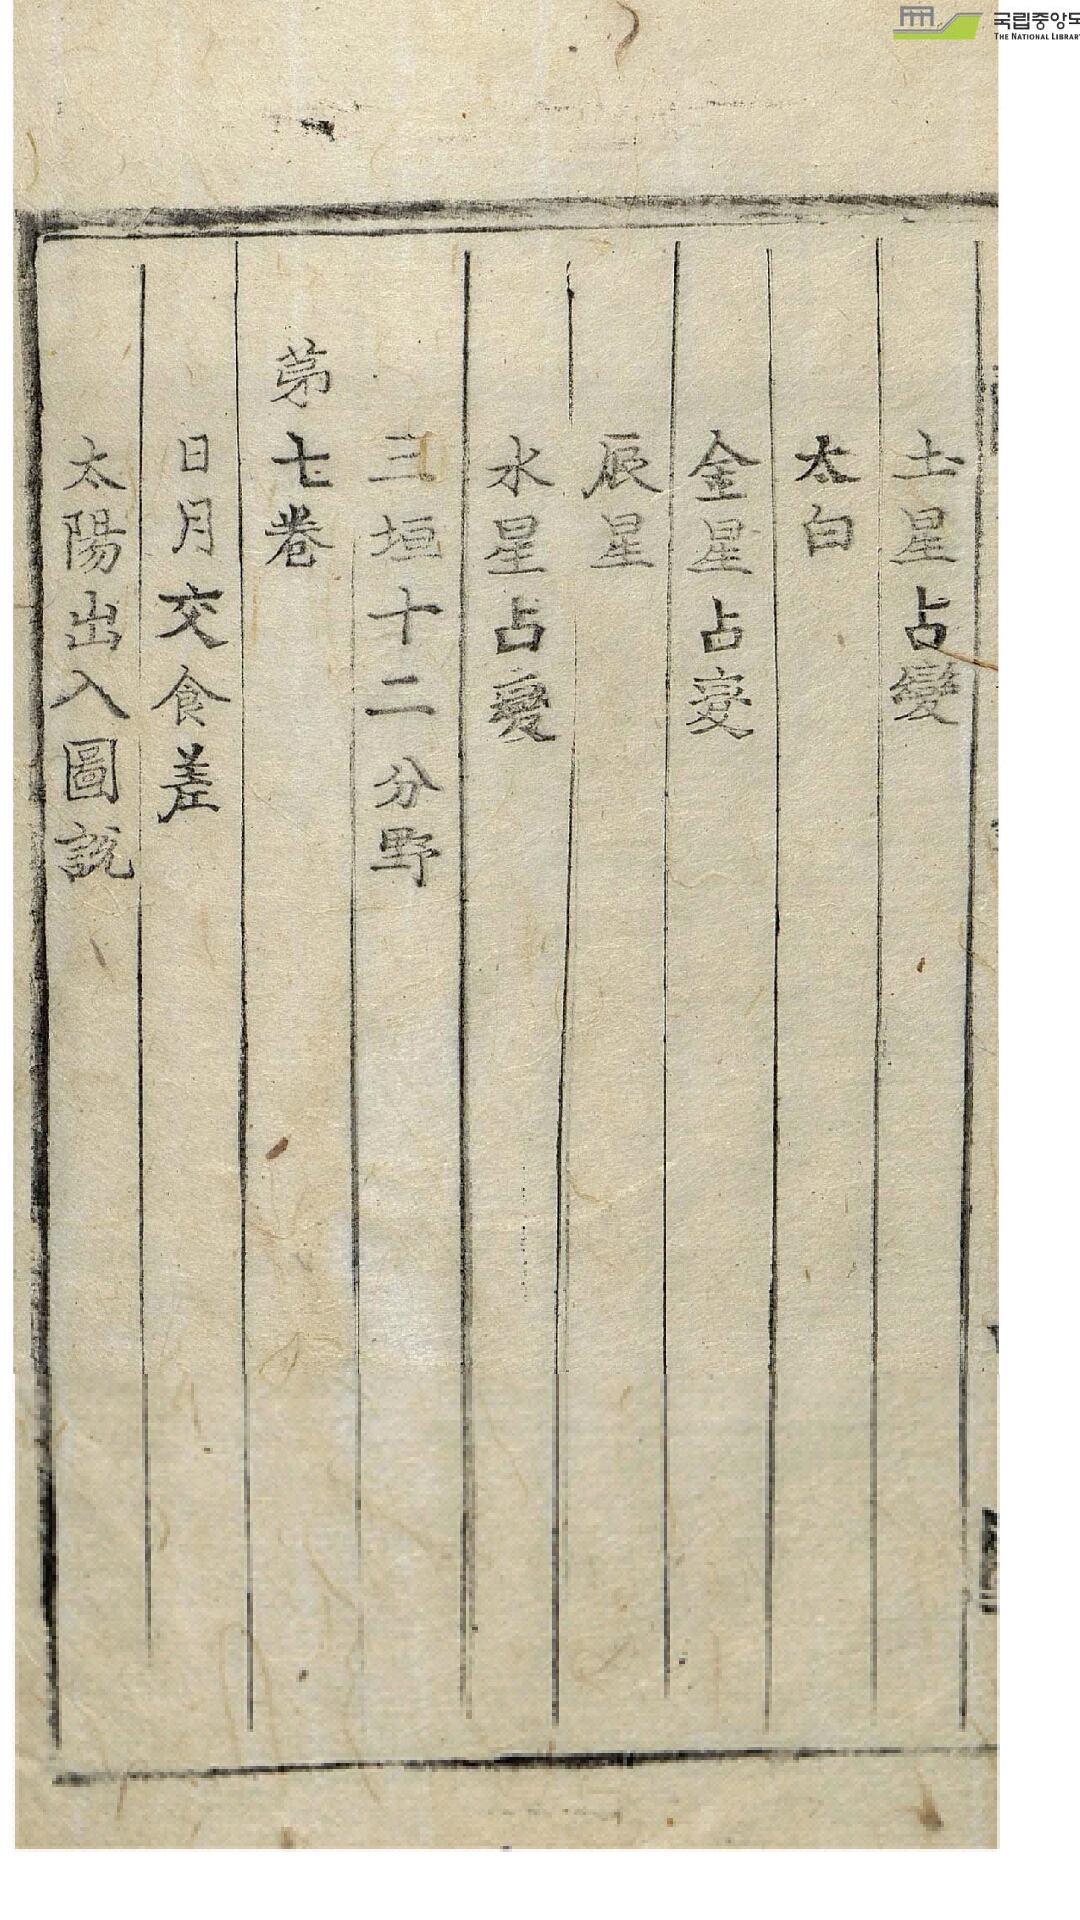 土星占變
太白
金星占変
辰星
水星占変
三垣十二分野
苐七卷
日月交食差
太陽出入圖説
국립중앙도
THE NATIONAL LIBRARY